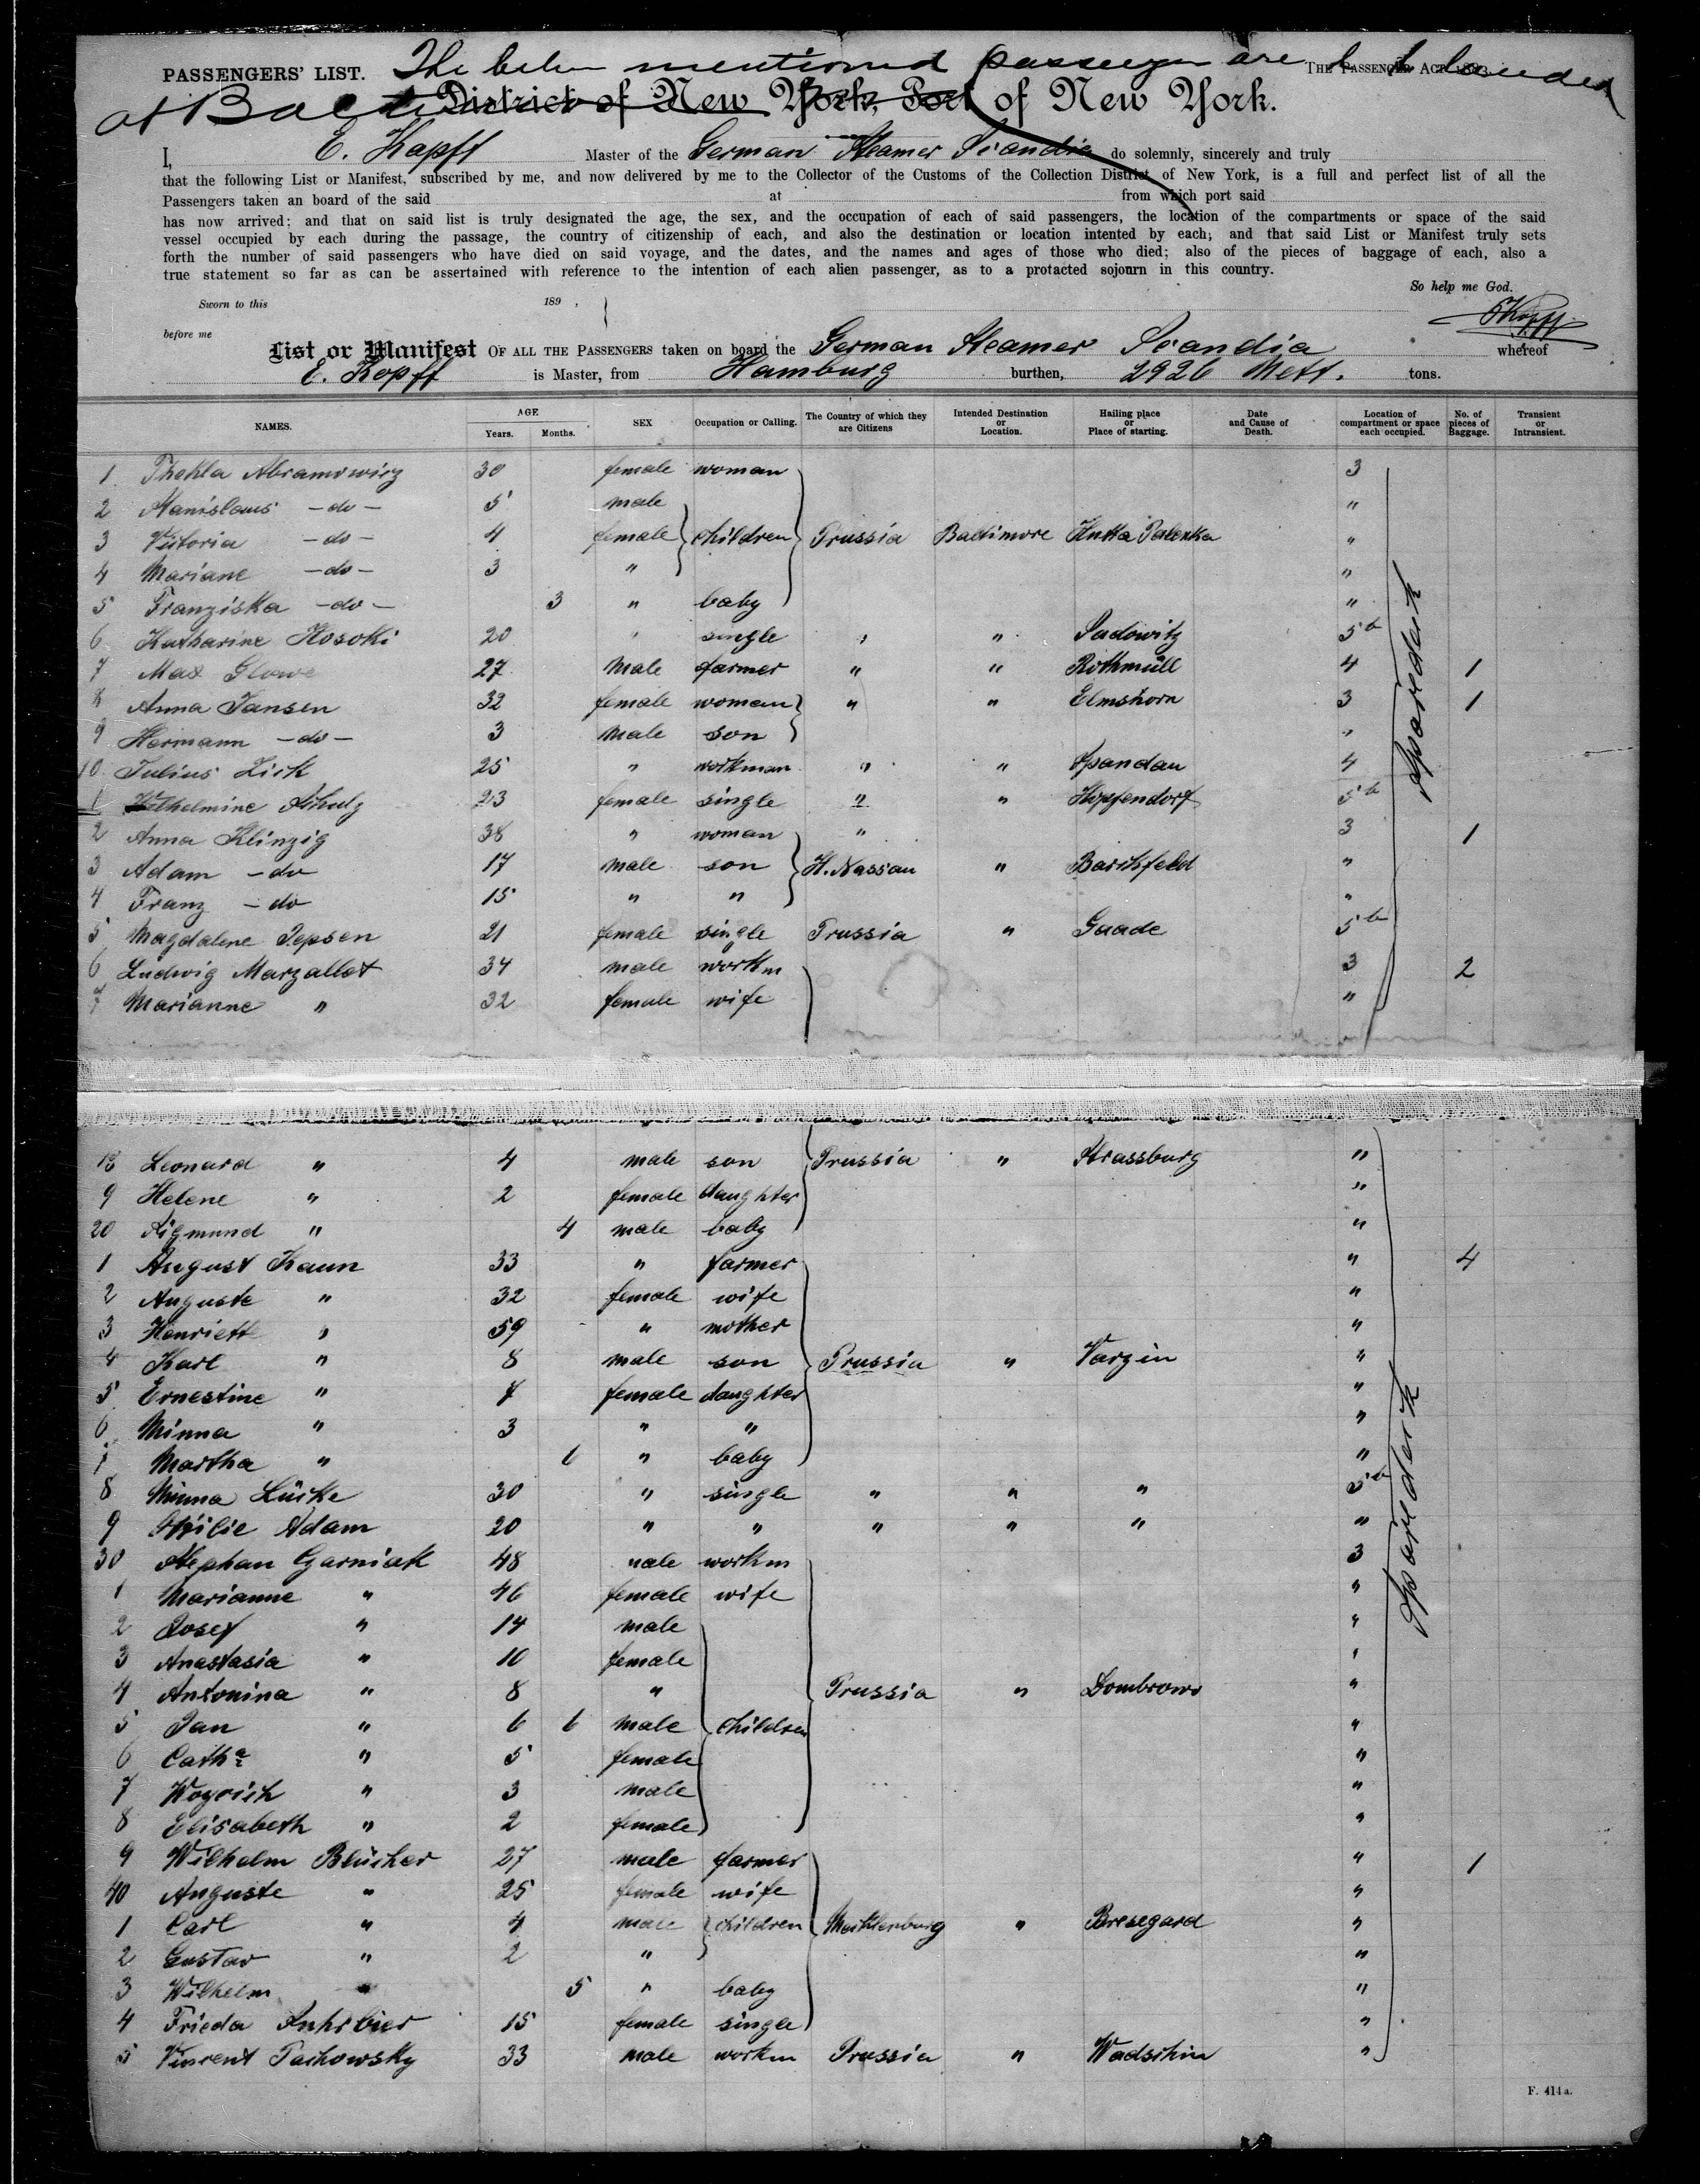 The below mentioned passenger are to be landed
PASSENGERS' LIST. THE PASSENGER ACT 1882.
at Baltimore
District of New York, Port of New York.
I, E. Kopff Master of the German Steamer Scandia do solemnly, sincerely and truly
that the following List or Manifest, subscribed by me, and now delivered by me to the Collector of the Customs of the Collection District of New York, is a full and perfect list of all the
Passengers taken an board of the said at from which port said
has now arrived; and that on said list is truly designated the age, the sex, and the occupation of each of said passengers, the location of the compartments or space of the said
vessel occupied by each during the passage, the country of citizenship of each, and also the destination or location intented by each; and that said List or Manifest truly sets
forth the number of said passengers who have died on said voyage, and the dates, and the names and ages of those who died; also of the pieces of baggage of each, also a
true statement so far as can be assertained with reference to the intention of each alien passenger, as to a protacted sojourn in this country.
So help me God.
Sworn to this 189 ,
EKopff
before me
List or Manifest OF ALL THE PASSENGERS taken on board the German Steamer Scandia whereof
E. Kopff is Master, from Hamburg burthen, 2926 Nett. tons.
NAMES. AGE Years. Months. SEX Occupation or Calling. The Country of which they are Citizens Intended Destination or Location. Hailing place or Place of starting. Date and Cause of Death. Location of compartment or space each occupied. No. of pieces of Baggage. Transient or Intransient.
1 Thekla Abramowicz 30 female woman 3
2 Stanislaus -do- 5 male "
3 Victoria -do- 4 female children Prussia Baltimore Hutta Palenka "
4 Mariane -do- 3 " "
5 Franziska -do- 3 " baby "
6 Katharine Kosoki 20 " single " " Sadowitz 5b
7 Max Glowe 27 male farmer " " Rothmüll 4 1
8 Anna Jansen 32 female woman " " Elmshorn 3 1
9 Hermann -do- 3 male son "
10 Julius Zick 25 " workman " " Spandau 4
1 Wilhelmine Schulz 23 female single " " Hopfendorf 5b
2 Anna Klinzig 38 " woman " 3 1
3 Adam -do 17 male son H. Nassau " Barchfeld "
4 Franz -do 15 " " "
5 Magdalene Jepsen 21 female single Prussia " Gaade 5b
6 Ludwig Marzallot 34 male workm 3 2
7 Marianne " 32 female wife "
18 Leonard " 4 male son Prussia " Strassburg "
9 Helene " 2 female daughter "
20 Sigmund " 4 male baby "
1 August Kaun 33 " farmer " 4
2 Auguste " 32 female wife "
3 Henriette " 59 " mother "
4 Karl " 8 male son Prussia " Varzin "
5 Ernestine " 7 female daughter "
6 Minna " 3 " " "
7 Martha " 6 " baby "
8 Minna Lücke 30 " single " " " 5b
9 Ottilie Adam 20 " " " " " "
30 Stephan Garniak 48 male workm 3
1 Marianne " 46 female wife "
2 Josef " 14 male "
3 Anastasia " 10 female "
4 Antonina " 8 " Prussia " Dombrowo "
5 Jan " 6 6 male children "
6 Catha " 5 female "
7 Woyrich " 3 male "
8 Elisabeth " 2 female "
9 Wilhelm Blücher 27 male farmer " 1
40 Auguste " 25 female wife "
1 Carl " 4 male children Mecklenburg " Bresegard "
2 Gustav " 2 " "
3 Wilhelm " 5 " baby "
4 Frieda Suhrbier 15 female single "
5 Vincent Pachowsky 33 male workm Prussia " Wadschin "
Sparedeck
Sparedeck
F. 414a.